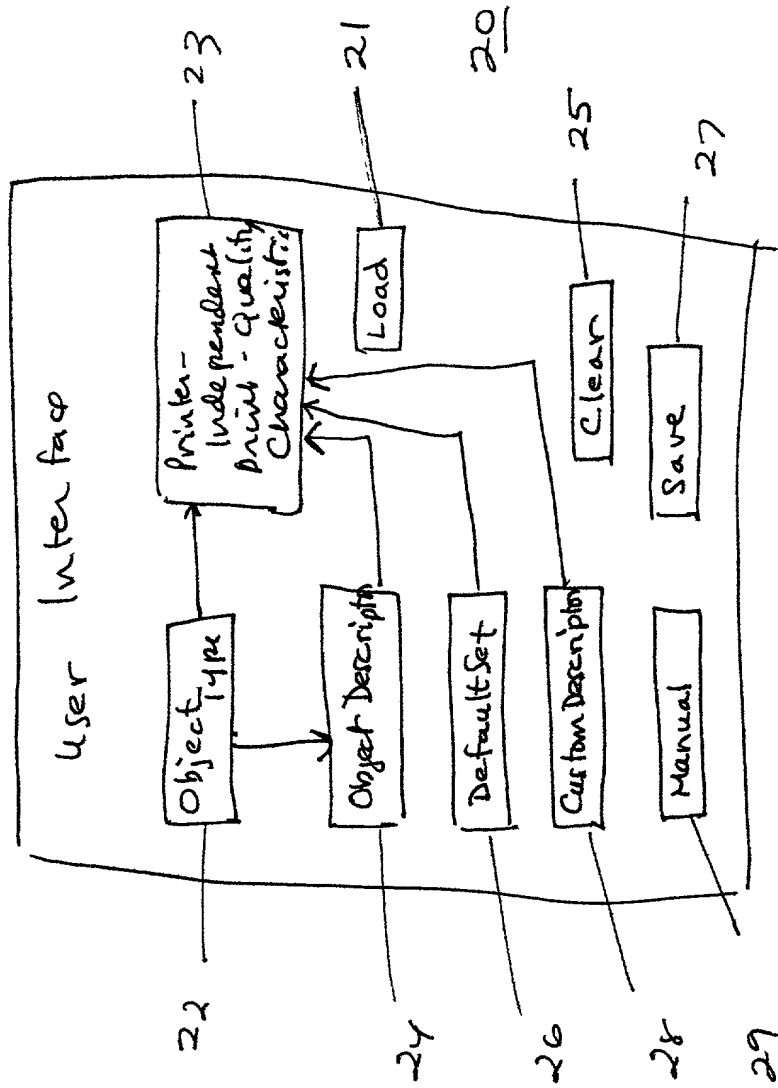 User Interface
Object
Type
Printer-
Independent
Print-Quality
Characteristic
Object Descriptor
Default Set
Custom Descriptor
Manual
Load
Clear
Save
22
24
26
28
29
23
21
20
25
27